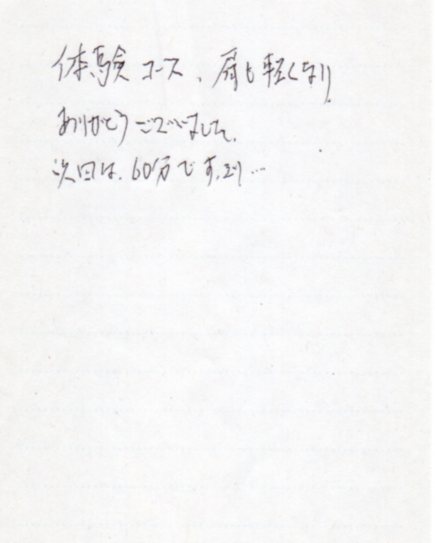 体験コース、肩も軽くなり
ありがとうございました。
次回は、60分ですっきり…